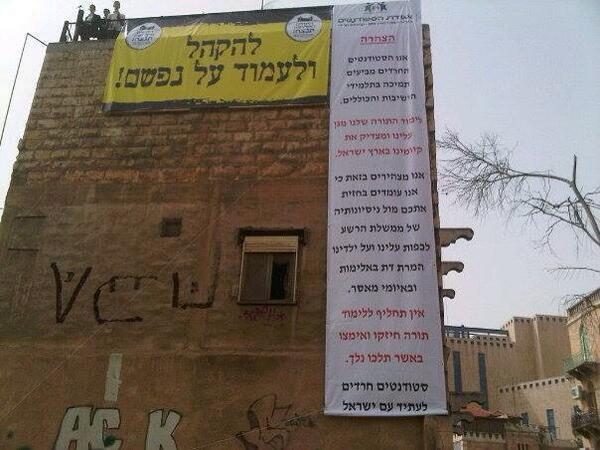 להקהל
ולעמוד על נפשם!
אגודת הסטודנטים
הצהרה
אנו הסטודנטים
החרדים מביעים
תמיכה בתלמידי
הישיבות והכוללים.
לימוד התורה שלנו מגן
עלינו ומצדיק את
קיומינו בארץ ישראל.
אנו מצהירים בזאת כי
אנו עומדים בחזית
אתכם מול ניסיונותיה
של ממשלת הרשע
לכפות עלינו ועל ילדינו
המרת דת באלימות
ובאיומי מאסר.
אין תחליף ללימוד
תורה חיזקו ואימצו
באשר תלכו נלך.
סטודנטים חרדים
לעתיד עם ישראל
ACK